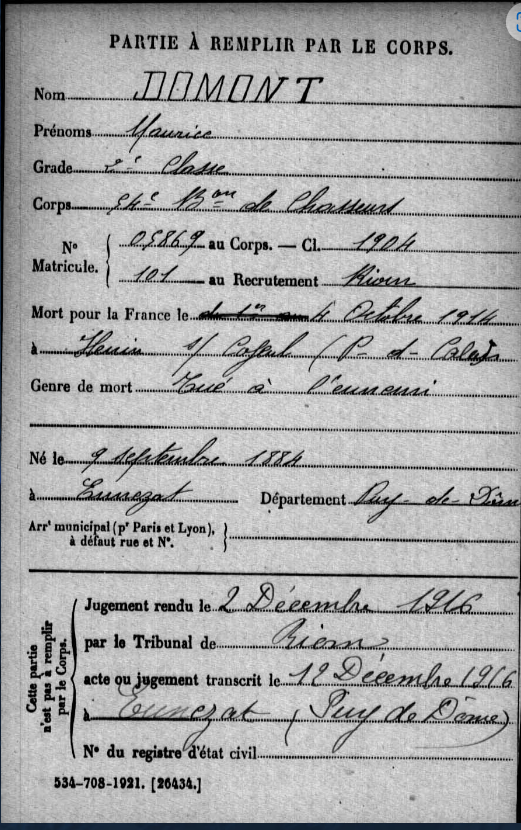 PARTIE À REMPLIR PAR LE CORPS.
Nom DOMONT
Prénoms Maurice
Grade 2e Classe
Corps 54e Bon de Chasseurs
No Matricule. { 05869 au Corps. — Cl. 1904
101 au Recrutement Riom
Mort pour la France le du 1er au 4 Octobre 1914
à Henin s/ Cojeul (P- d- Calais
Genre de mort Tué à l'ennemi
Né le 9 septembre 1884
à Ennezat Département Puy-de-Dôm
Arrt municipal (pr Paris et Lyon), à défaut rue et No. }
Cette partie n'est pas à remplir par le Corps.
Jugement rendu le 2 Décembre 1916
par le Tribunal de Riom
acte ou jugement transcrit le 12 Décembre 1916
à Ennezat (Puy de Dôme)
No du registre d'état civil
534-708-1921. [26434.]